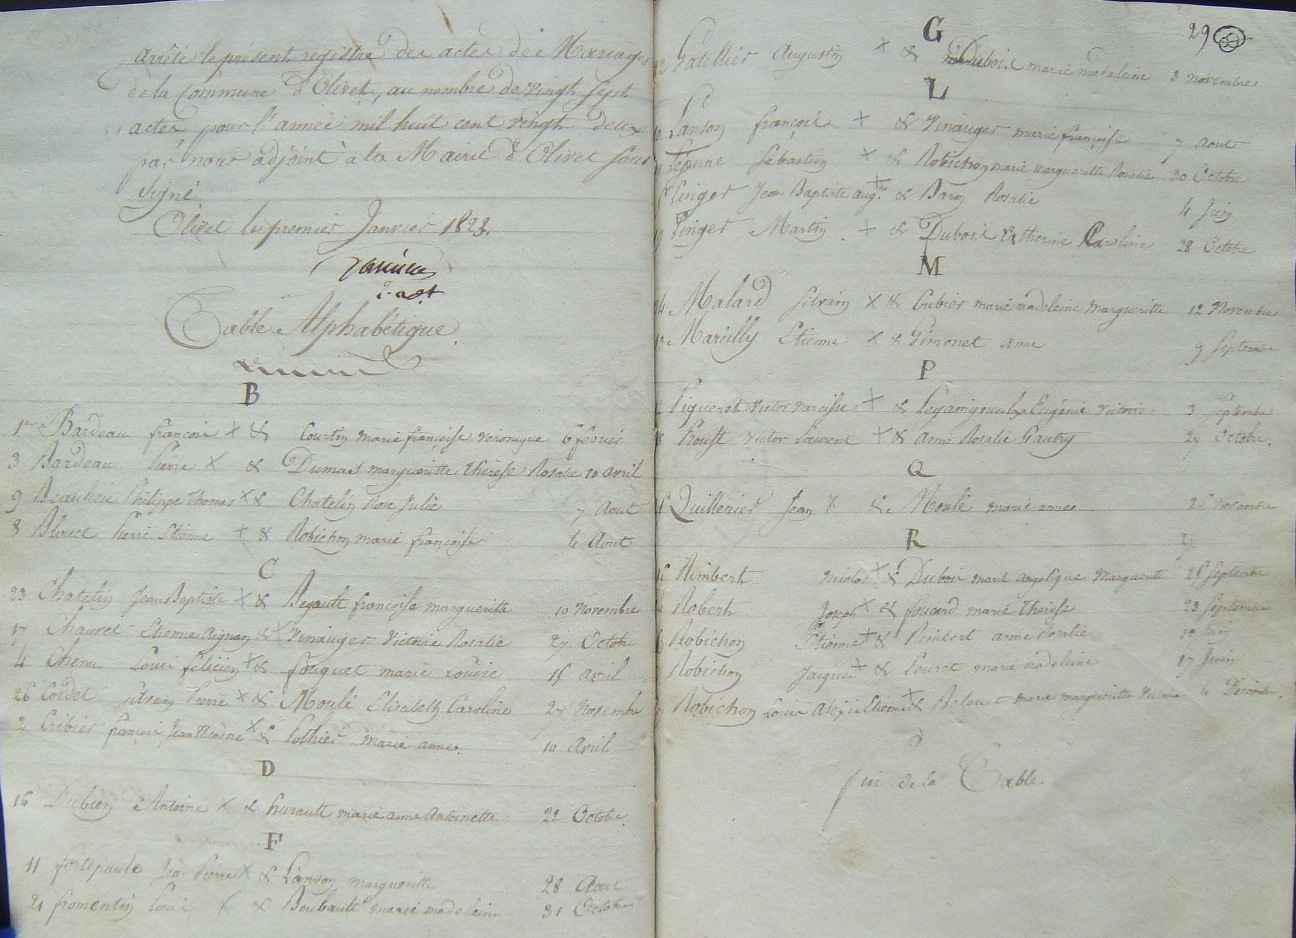 arrêté le présent registre des actes de Mariages
de la Commune d'Olivet, au nombre de vingt sept
actes pour l'année mil huit cent vingt deux
par nous adjoint à la Mairie d'Olivet sous
signé
Olivet le premier Janvier 1823.
Table Alphabétique.
B
1er Bardeau françois × & Courtin marie françoise véronique 6 février
3 Bardeau Pierre × & Dumas margueritte thérèse Rosalie 10 avril
9 Beaulieu Philippe Thomas × & Chatelin Rose Julie 7 Aout
8 Blouet Pierre Etienne + & Robichon marie françoise 6 Aout
C
23 Chatelin Jean Baptiste × & Begault françoise margueritte 10 Novembre
17 Chauvet Etienne Aignan & Vinauger Victoire Rosalie 27 Octobre
4 Chenu Louis félicien + & fouquet marie Louise 15 avril
26 Cordet Silvain Pierre × & Moulé Elisabeth Caroline 27 Novembre
2 Cribier françois Jean Théodore × & Pothier marie anne. 10 Avril
D
16 Dubien Antoine × & hurault marie anne Antoinette 22 Octobre.
F
11 fortepaule Pierre × & Lanson margueritte 28 Aout
21 fromentin Louis × & Boubault marie madeleine 31 Octobre
29
G
22 Gatellier Augustin × & Dubois marie madeleine 3 Novembre
L
Lanson françois + & Vinauger marie françoise 7 Aout
Lejeune Sébastien × & Robichon marie margueritte Rosalie 30 Octobre
Linger Jean Baptiste aug. + & Baron Rosalie 4 Juin
Linger Martin + & Dubois Catherine Caroline 28 Octobre
M
24 Malard Silvain × & Cribier marie madeleine Margueritte 12 Novembre
Marcilly Etienne × & Simonet anne 9 Septembre
P
Piqueret Victor Narcisse + & Eugénie Victoire 3 Septembre
Proust Victor Laurent + & Anne Rosalie Gautry 27 Octobre.
Q
Quillerier Jean × & Moulé marie anne 25 Novembre
R
Rimbert Nicolas + & Dubois marie angélique Margueritte Septembre
Robert Joseph × & foucard marie thérèse 23 Septembre
Robichon Etienne + & Rimbert anne Rosalie Juin
Robichon Jacques + & Louret marie madeleine 17 Juin
Robichon Louis Alexis Etienne + & Belouet marie margueritte
fin de la Table.